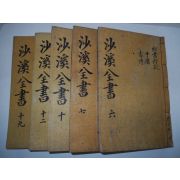 沙溪全書 六
沙溪全書 七
沙溪全書 十
沙溪全書 十二
沙溪全書 十九